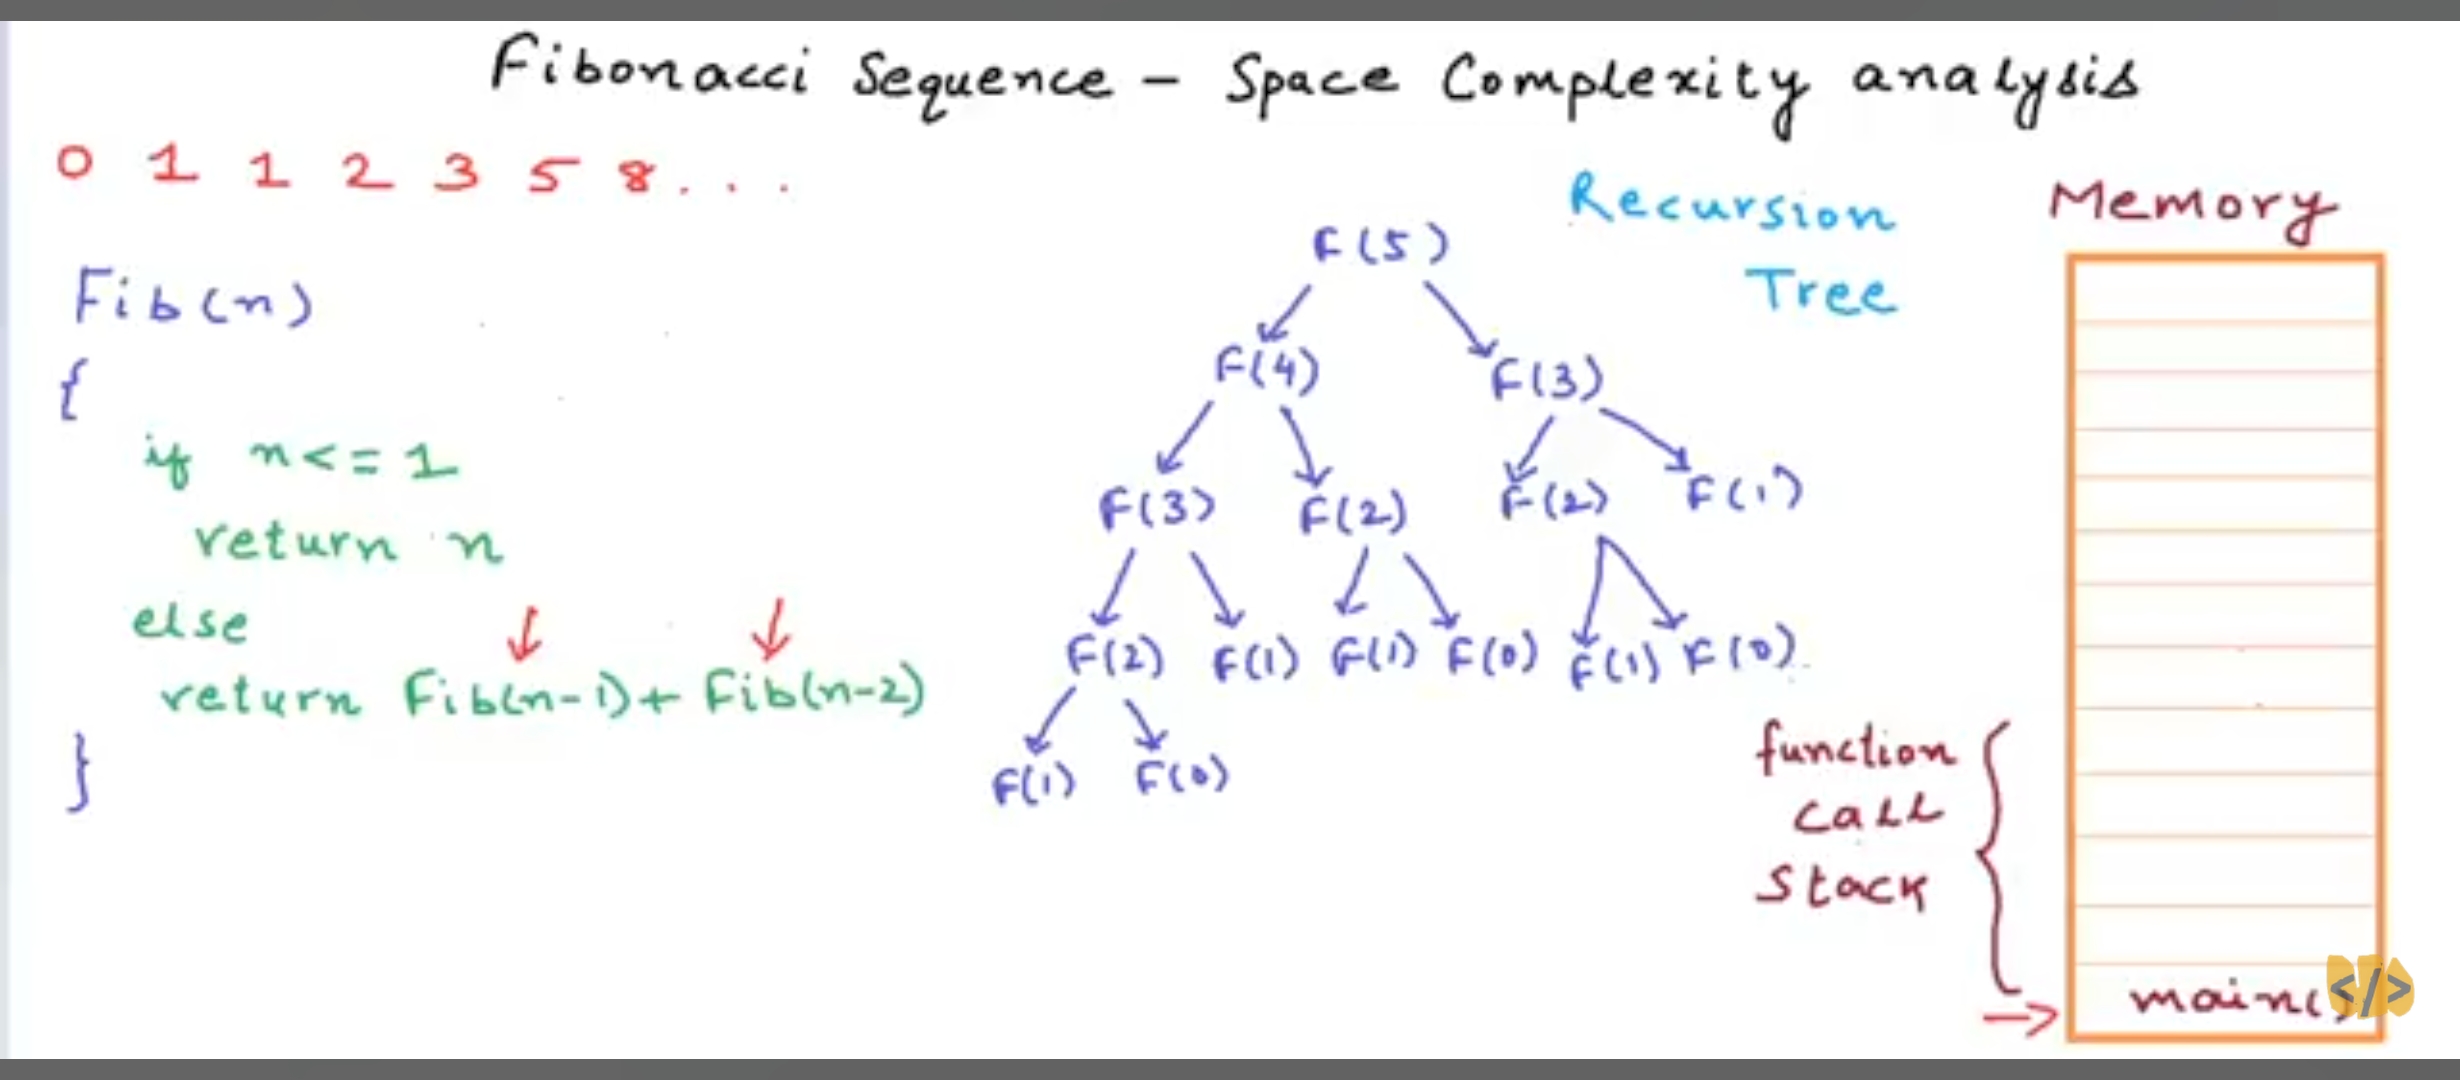 Fibonacci Sequence - Space Complexity analysis
0 1 1 2 3 5 8 . . .
Fib(n)
{
if n<=1
return n
else
return Fib(n-1)+ Fib(n-2)
}
Recursion
Tree
F(5)
F(4) F(3)
F(3) F(2) F(2) F(1)
F(2) F(1) F(1) F(0) F(1) F(0)
F(1) F(0)
Memory
function
call
stack
main()
</>